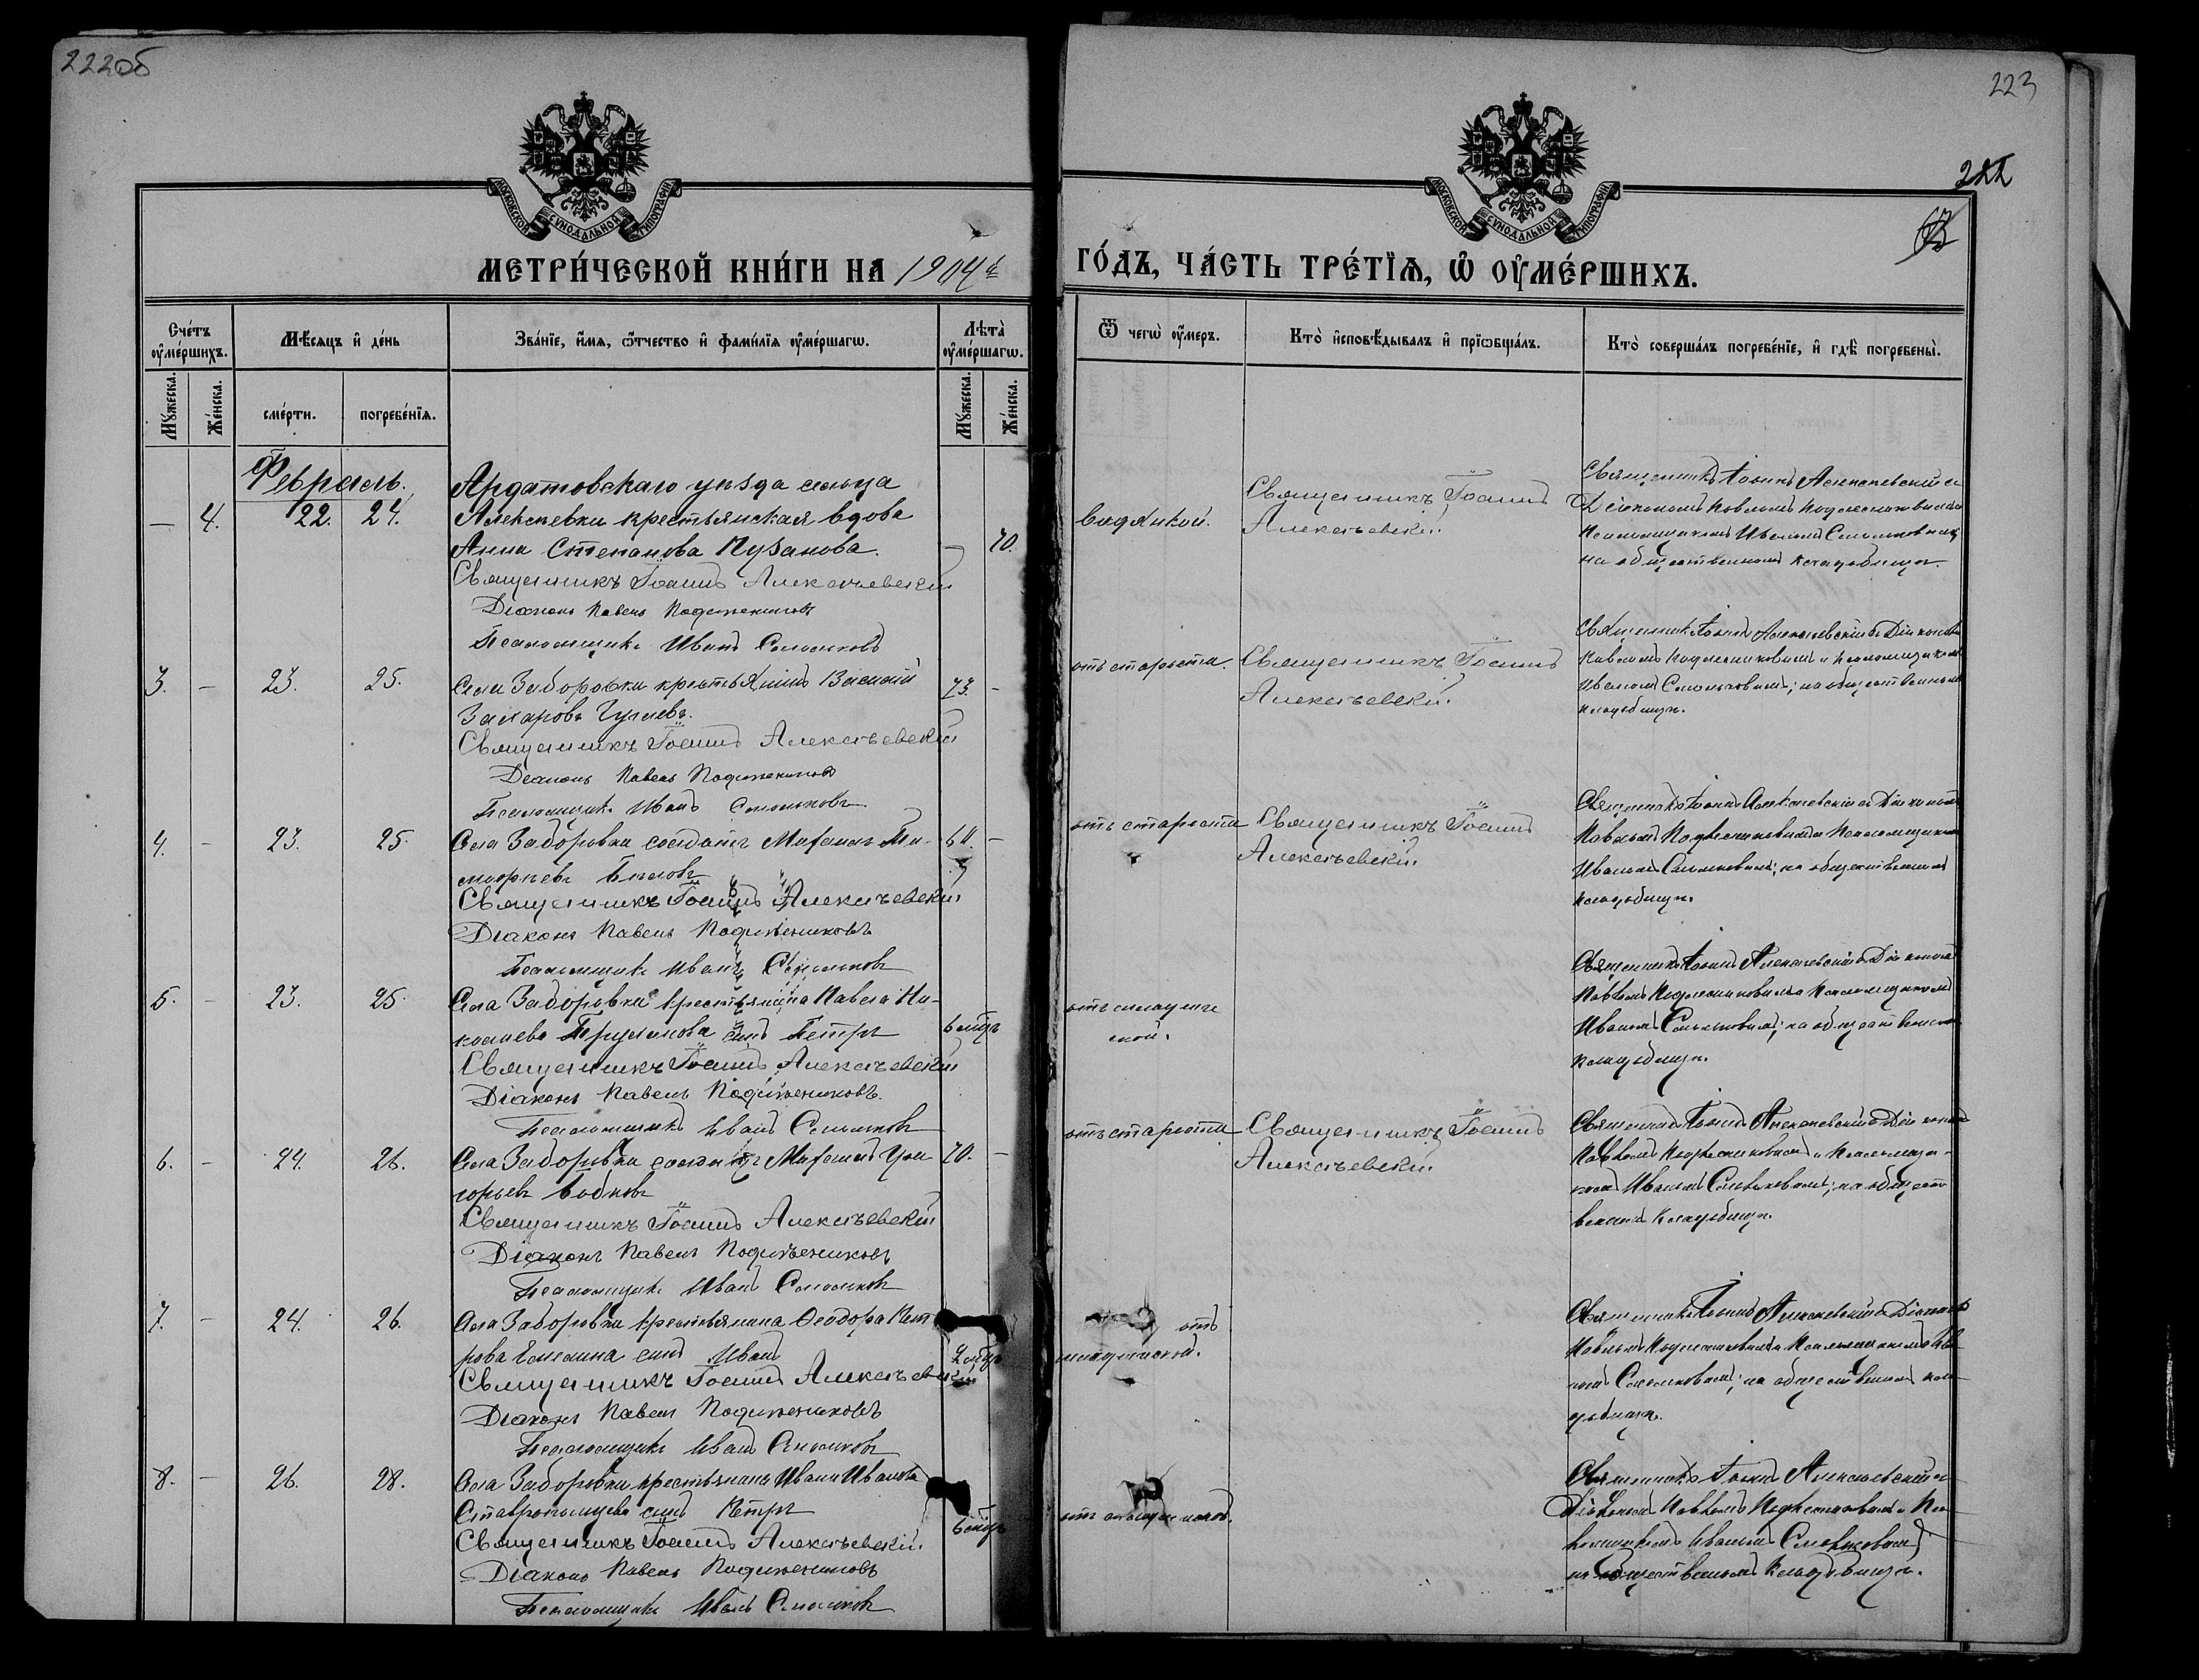 222об
223
222
МОСКОВСКОЙ СѴНОДАЛЬНОЙ ТИПОГРАФІИ
МОСКОВСКОЙ СѴНОДАЛЬНОЙ ТИПОГРАФІИ
МЕТРИ́ЧЕСКОЙ КНИ́ГИ НА 1904й
ГО́ДЪ, ЧА́СТЬ ТРЕ́ТЇѦ, Ѽ ОУ҆МЕ́РШИХЪ.
Сче́тъ оу҆ме́ршихъ.
Мѣ́сѧцъ и҆ де́нь
Зва́нїе, и҆́мѧ, ѻ҆́тчество и҆ фами́лїѧ оу҆ме́ршагѡ.
Лѣта̀ оу҆ме́ршагѡ.
Ѿ чегѡ̀ оу҆́меръ.
Кто̀ и҆сповѣ́дывалъ и҆ прїѡбща́лъ.
Кто̀ соверша́лъ погребе́нїе, и҆ гдѣ̀ погребены̀.
Мꙋ́жеска.
Же́нска.
сме́рти.
погребе́нїѧ.
Мꙋ́жеска.
Же́нска.
Февраль.
— 4. 22. 24.
Ардатовскаго уѣзда сельца
Алексѣевки крестьянская вдова
Анна Степанова Пузанова.
— 70.
Священникъ Іоаннъ Алексѣевскій
Діаконъ Павелъ Подлѣсниковъ
Псаломщикъ Иванъ Смольковъ
водянкой.
Священникъ Іоаннъ
Алексѣевскій.
Священникъ Іоаннъ Алексѣевскій съ
Діакономъ Павломъ Подлесниковымъ и
Псаломщикомъ Иваномъ Смольковымъ;
на общественномъ кладбищѣ.
3. — 23. 25.
Села Заборовки крестьянинъ Василій
Захаровъ
73. —
Священникъ Іоаннъ Алексѣевскій
Діаконъ Павелъ Подлѣсниковъ
Псаломщикъ Иванъ Смольковъ
отъ старости.
Священникъ Іоаннъ
Алексѣевскій.
Священникъ Іоаннъ Алексѣевскій съ Діакономъ
Павломъ Подлесниковымъ и псаломщикомъ
Иваномъ Смольковымъ; на общественномъ
кладбищѣ.
4. — 23. 25.
Села Заборовки солдатъ Михаилъ Ти-
мофѣевъ Бѣловъ
—
Священникъ Іоаннъ Алексѣевскій
Діаконъ Павелъ Подлѣсниковъ
Псаломщикъ Иванъ Смольковъ
отъ старости
Священникъ Іоаннъ
Алексѣевскій.
Священникъ Іоаннъ Алексѣевскій съ Діакономъ
Павломъ Подлесниковымъ и Псаломщикомъ
Иваномъ Смольковымъ; на общественномъ
кладбищѣ.
5. — 23. 25.
Села Заборовки крестьянина Павла Ни-
колаева сынъ Петръ
6 мѣс
Священникъ Іоаннъ Алексѣевскій
Діаконъ Павелъ Подлѣсниковъ.
Псаломщикъ Иванъ Смольковъ
отъ младенче
ской.
Священникъ Іоаннъ Алексѣевскій съ Діакономъ
Павломъ Подлесниковымъ и Псаломщикомъ
Иваномъ Смольковымъ; на общественномъ
кладбищѣ.
6. — 24. 26.
Села Заборовки солдатъ Михаилъ Гри-
горьевъ Бобковъ
70. —
Священникъ Іоаннъ Алексѣевскій
Діаконъ Павелъ Подлѣсниковъ
Псаломщикъ Иванъ Смольковъ
отъ старости
Священникъ Іоаннъ
Алексѣевскій.
Священникъ Іоаннъ Алексѣевскій съ Діакономъ
Павломъ Подлесниковымъ и Псаломщи-
комъ Иваномъ Смольковымъ; на общест
венномъ кладбищѣ.
7. — 24. 26.
Села Заборовки крестьянина Ѳеодора Пет
рова Емелина сынъ Иванъ
Священникъ Іоаннъ Алексѣевскій
Діаконъ Павелъ Подлѣсниковъ
Псаломщикъ Иванъ Смольковъ
отъ
младенческой.
Священникъ Іоаннъ Алексѣевскій съ Діакономъ
Павломъ Подлесниковымъ и Псаломщикомъ Ива
номъ Смольковымъ; на общественномъ кла
дбищѣ.
8. — 26. 28.
Села Заборовки крестьянина Ивана Иванова
Ставропольцева сынъ Петръ
Священникъ Іоаннъ Алексѣевскій.
Діаконъ Павелъ Подлѣсниковъ
Псаломщикъ Иванъ Смольковъ
Священникъ Іоаннъ Алексѣевскій съ
Діакономъ Павломъ Подлесниковымъ и Пса
ломщикомъ Иваномъ Смольковымъ,
на общественномъ кладбищѣ.